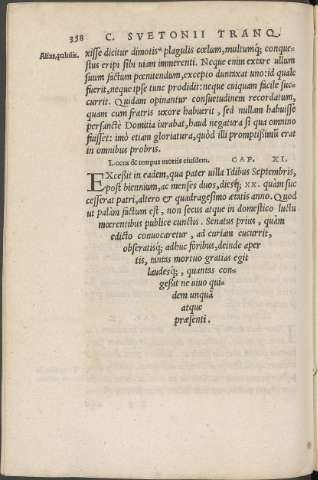 358 C. SVETONII TRANQ.
Alias, pulsisse.
xisse dicitur dimotis plagulis cœlum, multumq; conque-
stus eripi sibi uitam immerenti. Neque enim extare ullum
suum factum pœnitendum, excepto duntaxat uno: id quale
fuerit, neque ipse tunc prodidit: neque cuiquam facile suc-
currit. Quidam opinantur consuetudinem recordatum,
quam cum fratris uxore habuerit, sed nullam habuisse
persancte Domitia iurabat, haud negatura si qua omnino
fuisset: imò etiam gloriatura, quòd illi promptissimũ erat
in omnibus probris.
Locus & tempus mortis eiusdem. CAP. XI.
EXcessit in eadem, qua pater uilla Idibus Septembris,
post biennium, ac menses duos, diesq; XX. quàm suc
cesserat patri, altero & quadragesimo ætatis anno. Quod
ut palàm factum est, non secus atque in domestico luctu
mœrentibus publicè cunctis. Senatus prius, quàm
edicto conuocaretur, ad curiam cucurrit,
obseratisq; adhuc foribus, deinde aper
tis, tantas mortuo gratias egit
laudesq;, quantas con-
gessit ne uiuo qui-
dem unquã
atque
præsenti.